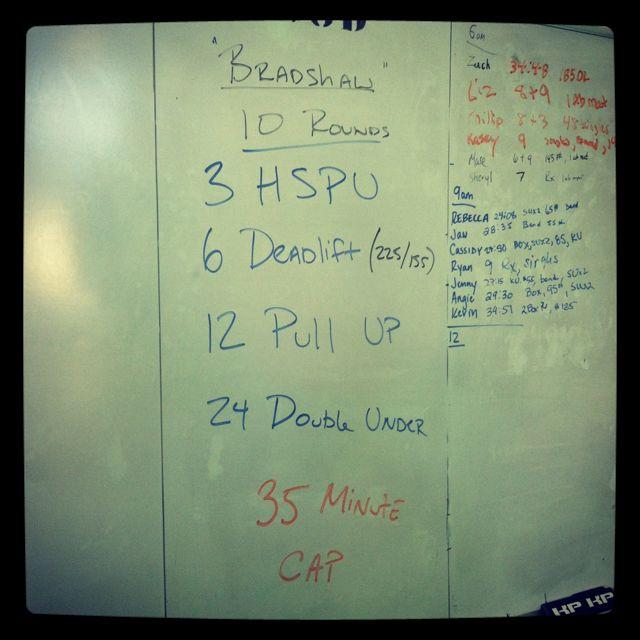 "BRADSHAW"
10 ROUNDS
3 HSPU
6 Deadlift (225/155)
12 Pull UP
24 Double UNDER
35 MINUTE
CAP
6am
Zach 34:48 185DL
Liz 8+9 1 ab mat
Phillip 8+3
9
6+9 145#, 1 ab mat
Sheryl 7 Rx 1 ab mat
9am
REBECCA 24:08 SUx2 65# Band
Jan 28:33 Band 55#
CASSIDY BOX, SUx2, 85, KU
Ryan 9 Rx, singles
Jenny 27:15 KU, #55, band, SUx2
Angie 29:30 Box, 95#, SUx2
Kevin 34:57 #185
12
HP HP